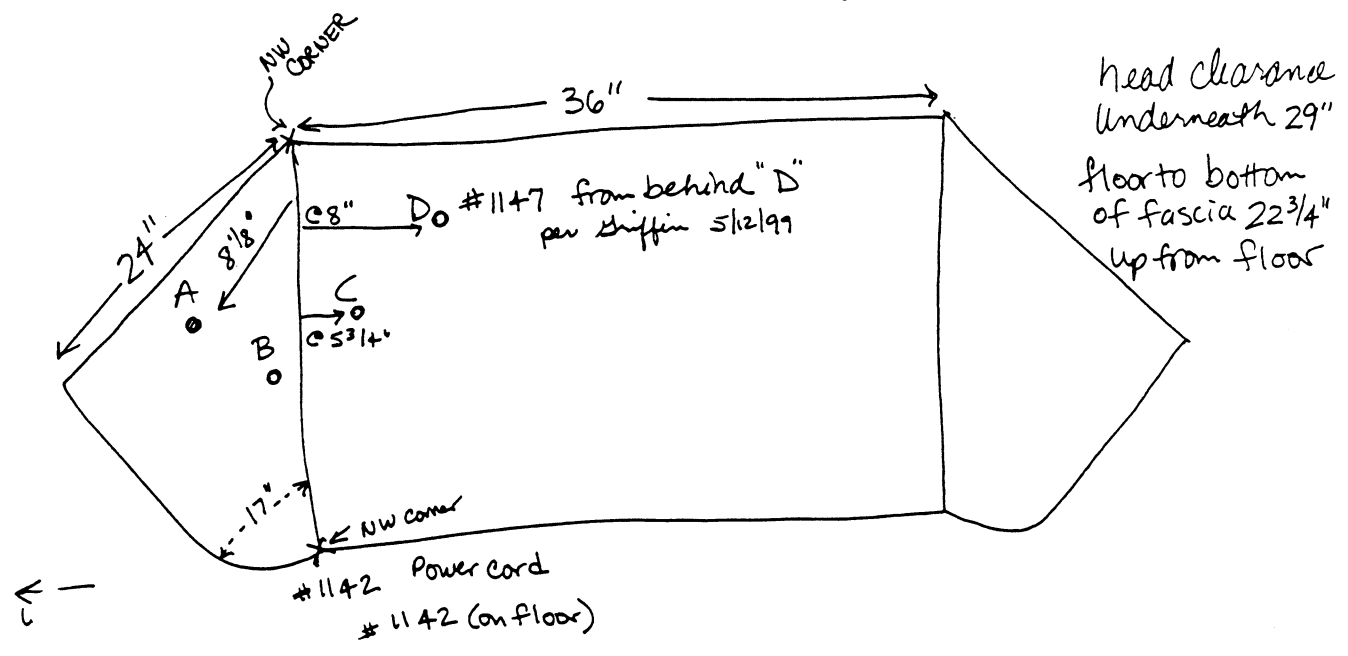 NW
CORNER
36"
head clearance
Underneath 29"
floor to bottom
of fascia 22 3/4"
up from floor
24"
8 1/8"
@ 8"
D
#1147 from behind "D"
per Griffin 5/12/99
A
C
@ 5 3/4"
B
17"
NW corner
#1142 Power cord
#1142 (on floor)